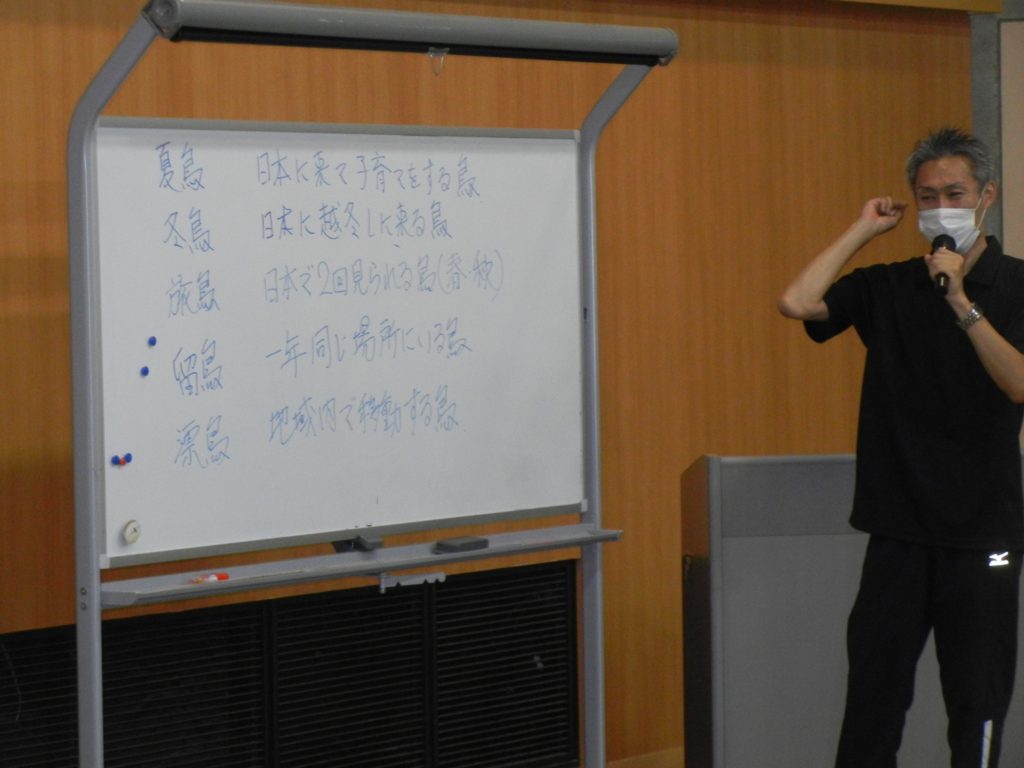 夏鳥 日本に来て子育てをする鳥
冬鳥 日本に越冬しに来る鳥
旅鳥 日本で2回見られる鳥(春・秋)
留鳥 一年同じ場所にいる鳥
漂鳥 地域内で移動する鳥